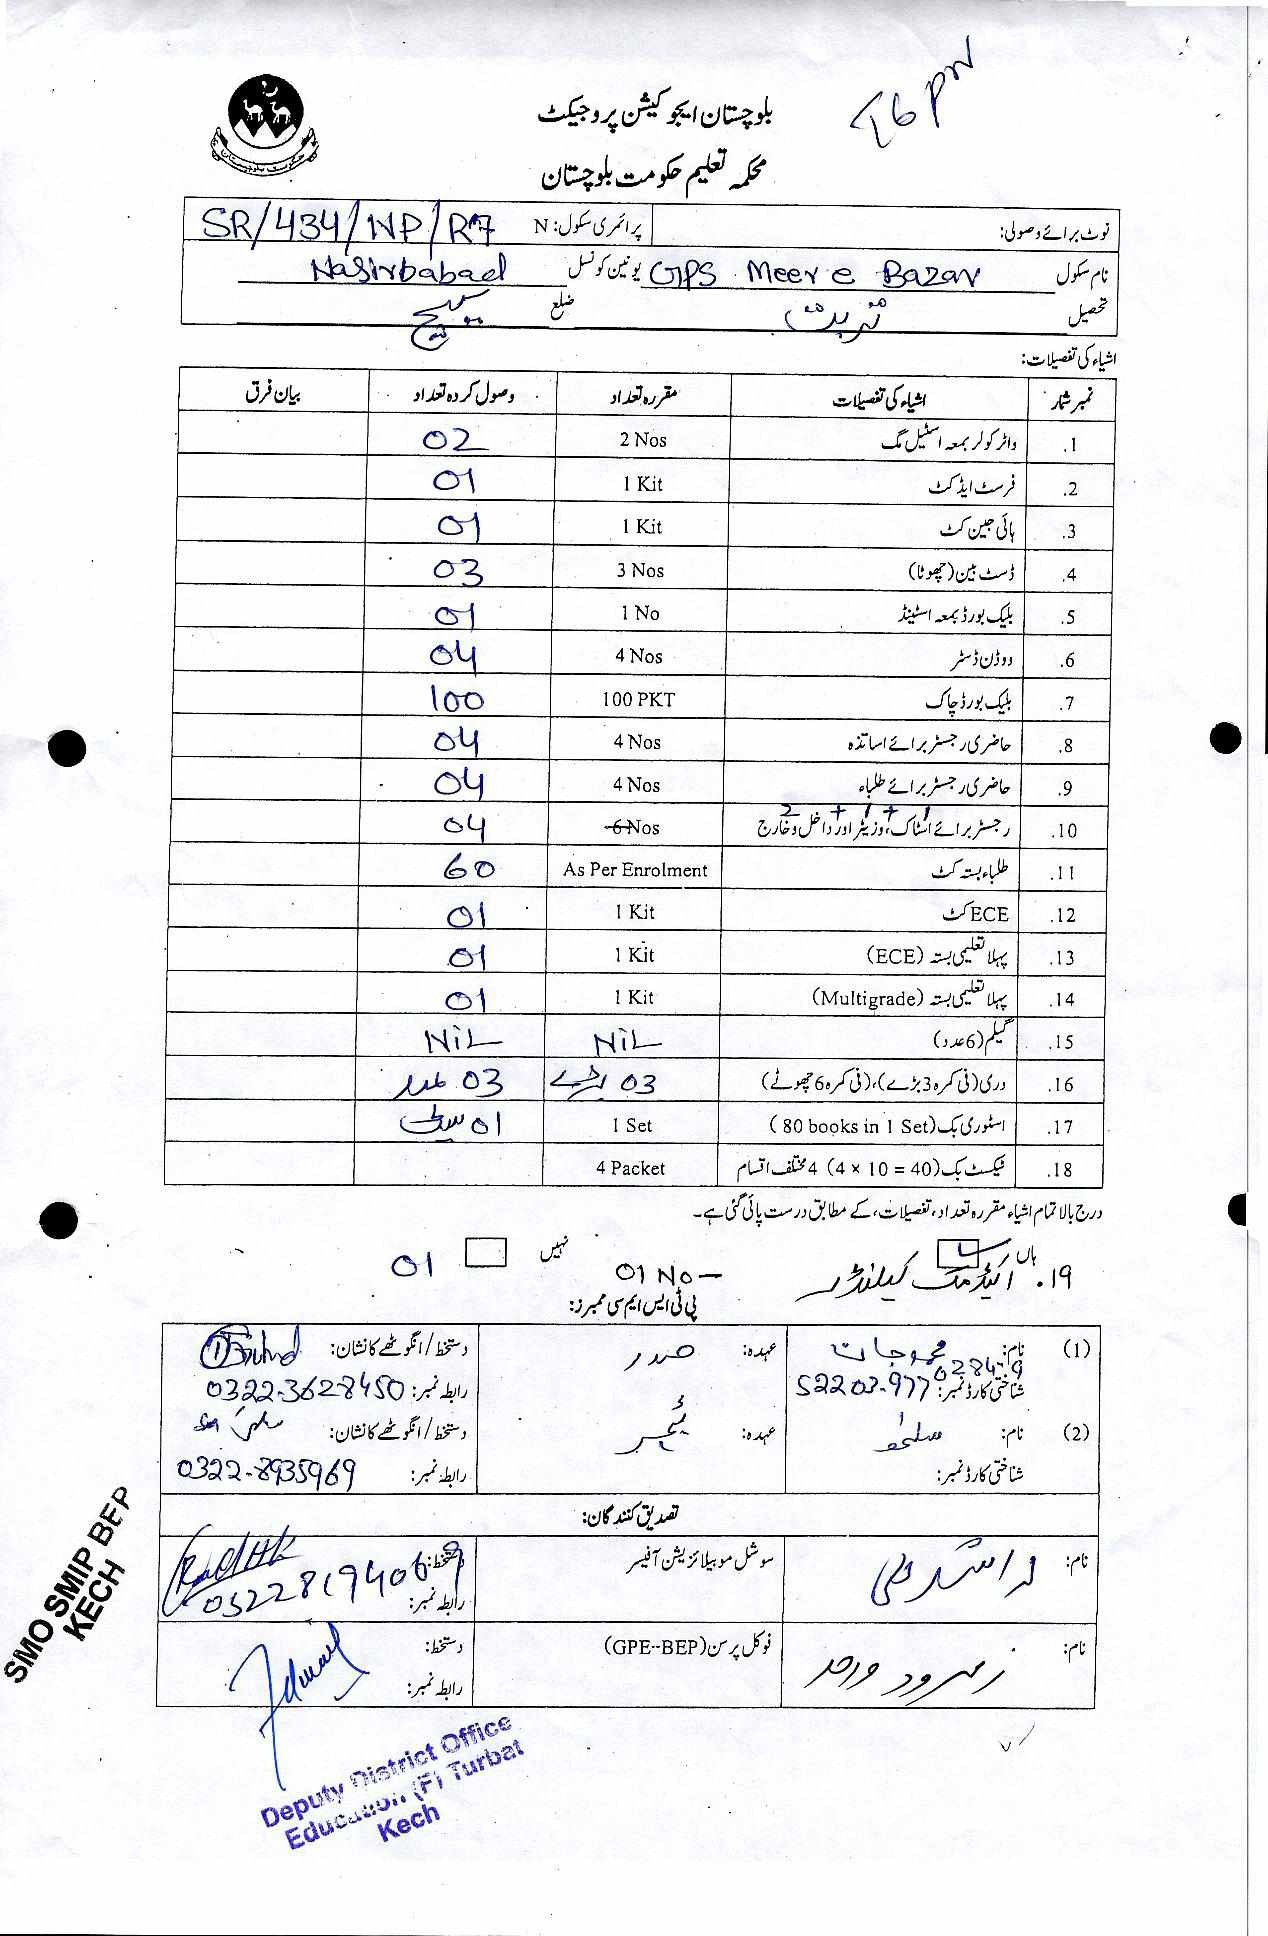 بلوچستان ایجوکیشن پروجیکٹ
محکمہ تعلیم حکومت بلوچستان
نوٹ برائے وصولی: پرائمری سکول: N SR/434/NP/R7
نام سکول GPS Meer e Bazar یونین کونسل Nasirbabad
تحصیل تربت ضلع کیچ
اشیاء کی تفصیلات:
نمبر شمار اشیاء کی تفصیلات مقررہ تعداد وصول کردہ تعداد بیان فرق
.1 واٹر کولر بمعہ اسٹیل مگ 2 Nos 02
.2 فرسٹ ایڈ کٹ 1 Kit 01
.3 ہائی جین کٹ 1 Kit 01
.4 ڈسٹ بین (چھوٹا) 3 Nos 03
.5 بلیک بورڈ بمعہ اسٹینڈ 1 No 01
.6 ووڈن ڈسٹر 4 Nos 04
.7 بلیک بورڈ چاک 100 PKT 100
.8 حاضری رجسٹر برائے اساتذہ 4 Nos 04
.9 حاضری رجسٹر برائے طلباء 4 Nos 04
2 + 1 + 1
.10 رجسٹر برائے اسٹاک، وزیٹر اور داخل و خارج 6 Nos 04
.11 طلباء بستہ کٹ As Per Enrolment 60
.12 ECE کٹ 1 Kit 01
.13 پہلا تعلیمی بستہ (ECE) 1 Kit 01
.14 پہلا تعلیمی بستہ (Multigrade) 1 Kit 01
.15 گیلم (6 عدد) NiL NiL
.16 دری (فی کمرہ 3 بڑے)، (فی کمرہ 6 چھوٹے) 03 بڑے 03 عدد
.17 اسٹوری بک (80 books in 1 Set) 1 Set 01 سیٹ
.18 ٹیکسٹ بک (4 x 10 = 40) 4 مختلف اقسام 4 Packet
درج بالا تمام اشیاء مقررہ تعداد، تفصیلات، کے مطابق درست پائی گئی ہے۔
ہاں نہیں
۱۹. اکیڈمک کیلنڈر 01 No 01
پی ٹی ایس ایم سی ممبرز:
(1) نام: عہدہ: صدر دستخط/انگوٹھے کا نشان:
شناختی کارڈ نمبر: 52203-977 رابطہ نمبر: 0322-3628450
(2) نام: عہدہ: ممبر دستخط/انگوٹھے کا نشان:
شناختی کارڈ نمبر: رابطہ نمبر: 0322-8935969
تصدیق کنندگان:
نام: راشد علی سوشل موبیلائزیشن آفیسر دستخط:
رابطہ نمبر:
نام: فوکل پرسن (GPE--BEP) دستخط:
رابطہ نمبر:
SMO SMIP BEP
KECH
Deputy District Office
Education (F) Turbat
Kech